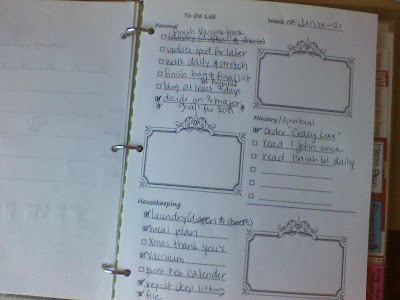 To Do List
Week Of: Jan 16-21
Personal
finish vaccine book
update ipod for labor
walk daily & stretch
finish bag & final list
for hospital
blog at least 3 days
decide on 3 major
goals for 2011
Ministry/Spiritual
Order "Crazy Love"
read 1 John once
read Isaiah 61 daily
Housekeeping
laundry (diapers & sheets)
meal plan
Xmas thank you's
Vaccuum
print new calender
keep litter
file